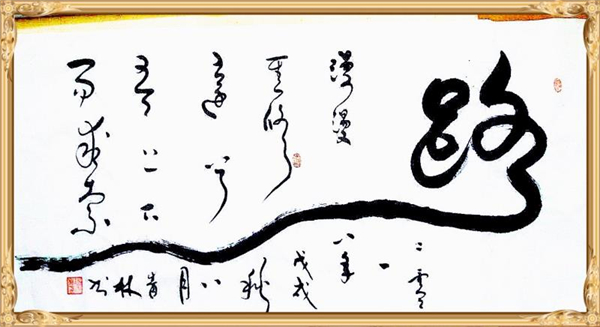 路
漫漫
其修
遠兮
吾上下
而求索
二零
一
八年
戊戌
秋
八月
林书